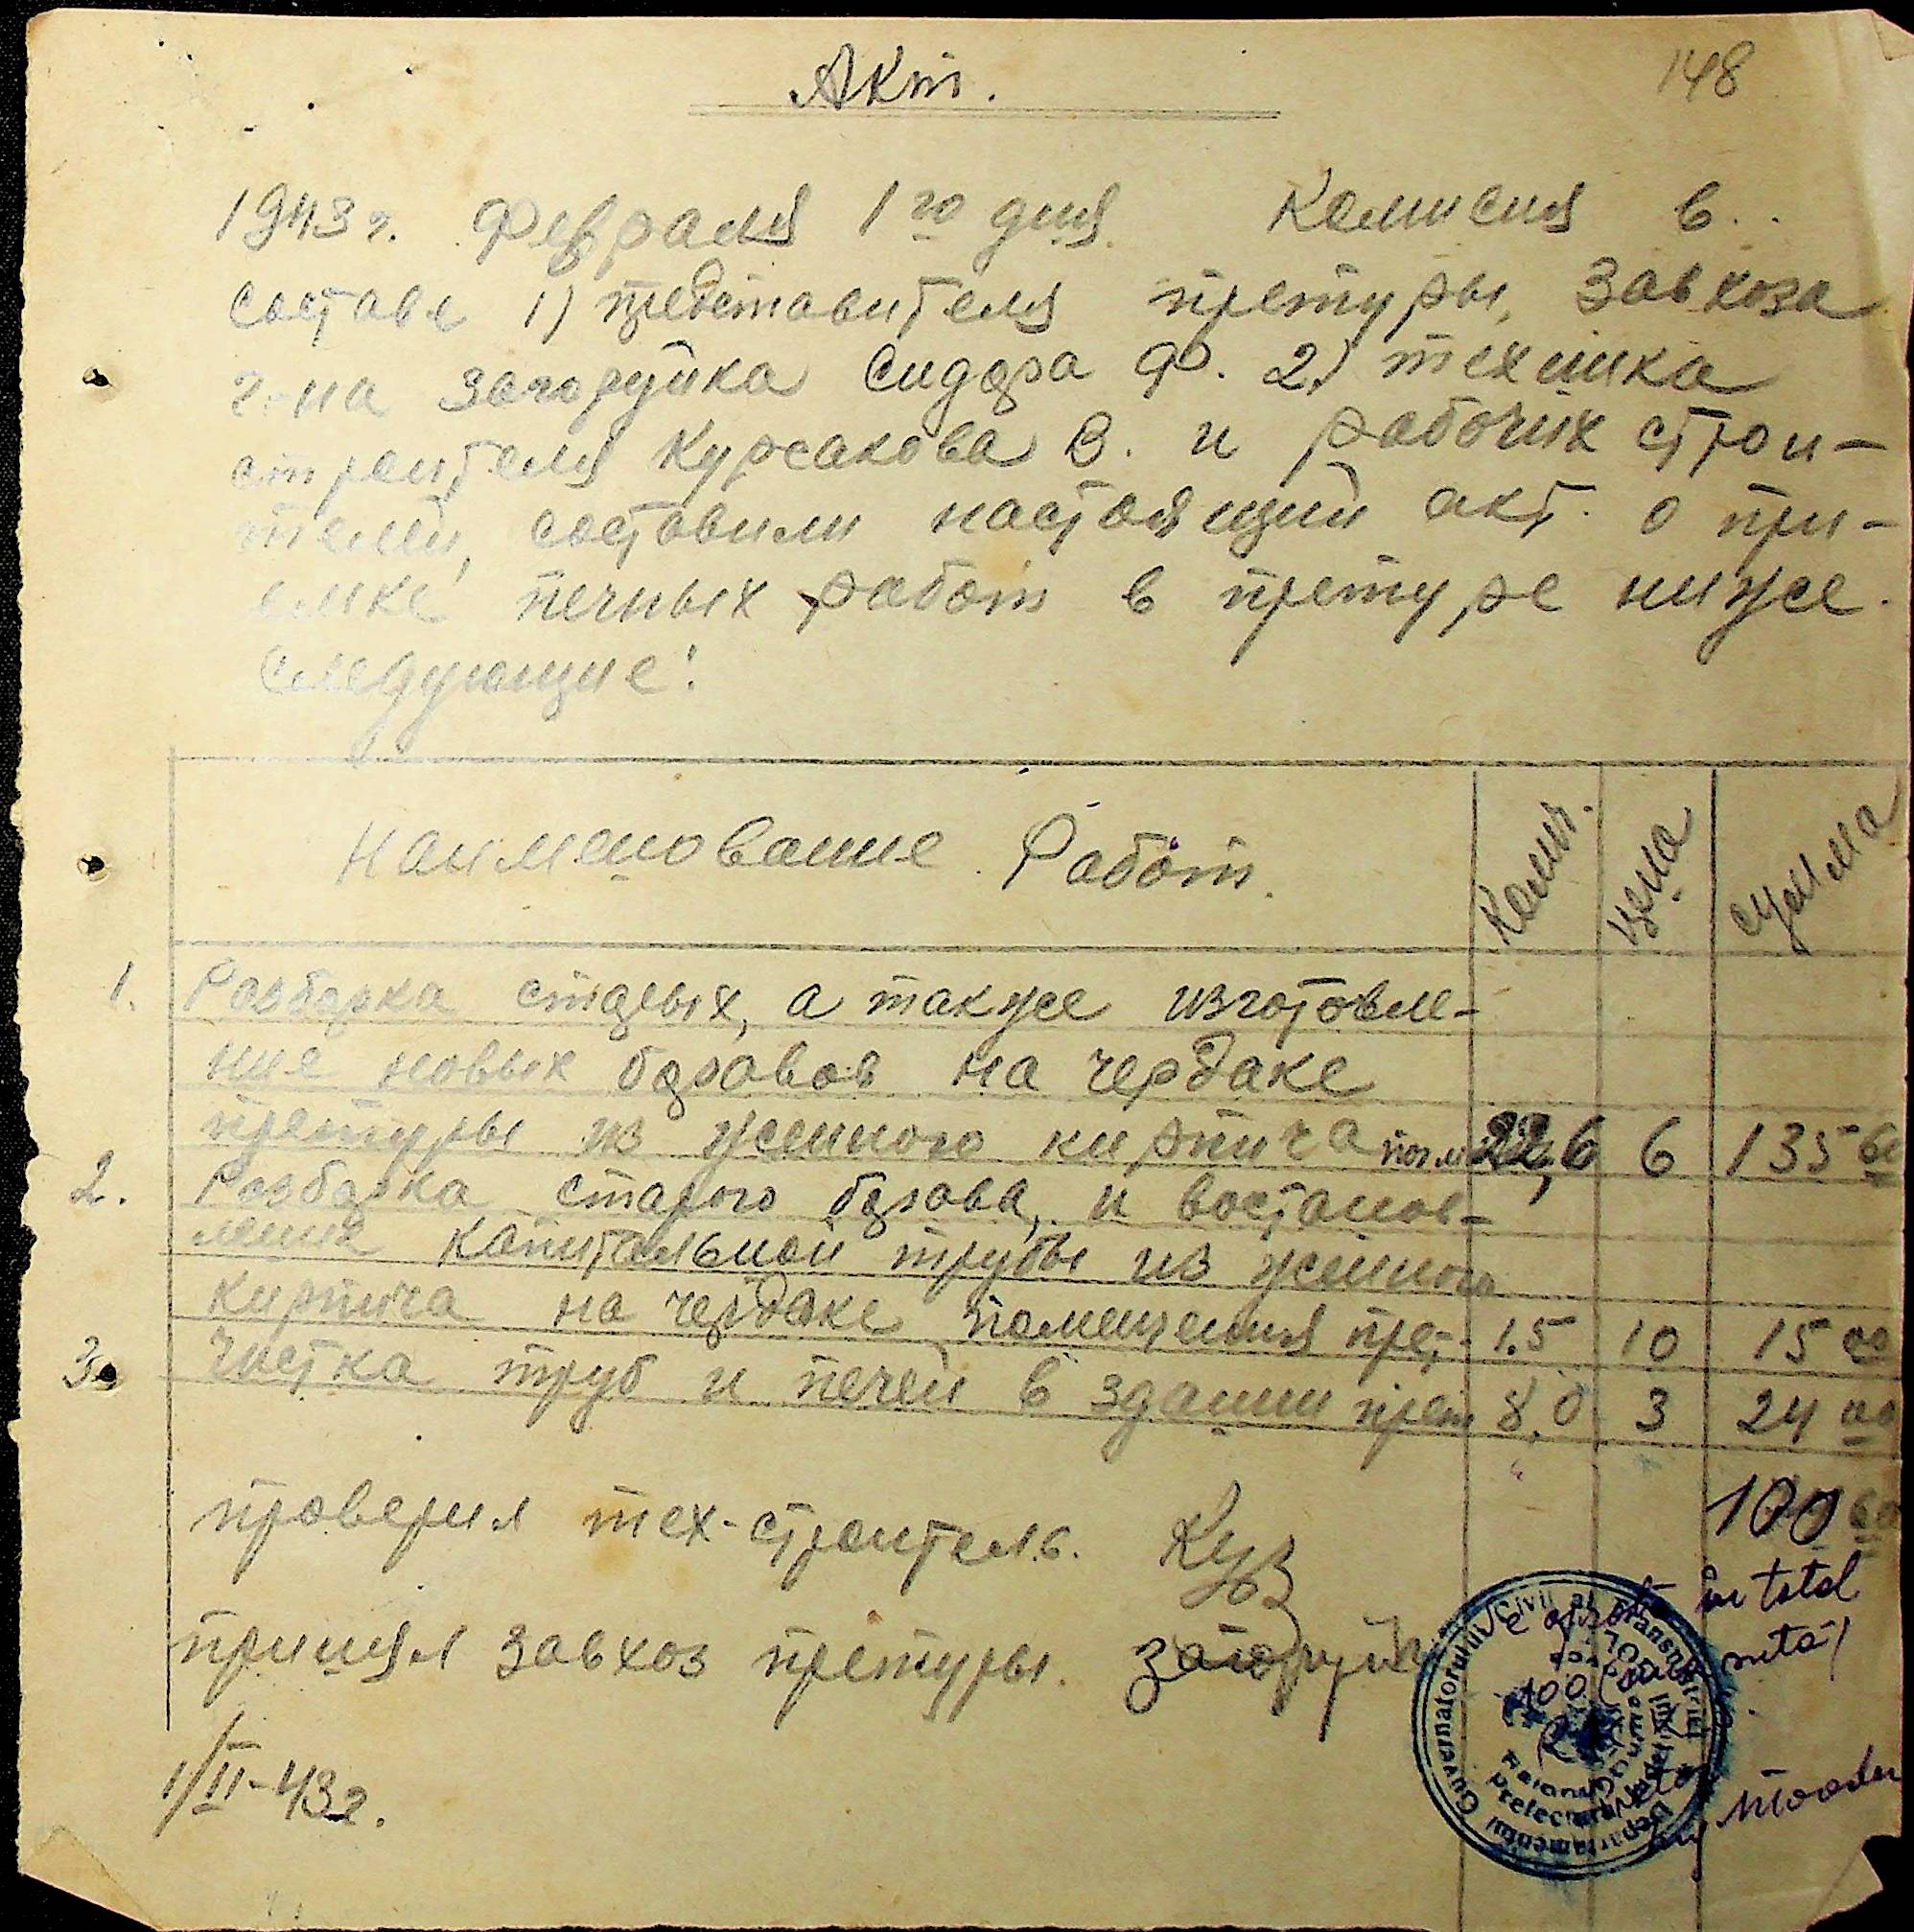 148
Акт.
1943 г. Февраля 1го дня Комисия в
составе 1) представителя претуры, завхоза
г-на Загоруйка Сидора Ф. 2) техника
строителя Курсакова В. и рабочих строи-
телей, составили настоящий акт. о при-
емке печных работ в претуре ниже
следующие:
Наименование Работ. Колич. цена сумма
1. Разборка старых, а также изготовле-
ние новых боровов на чердаке
претуры из женного кирпича пог м 22,6 6 135 60
2. Разборка старого борова, и востанов-
ление капитальной трубы из женного
кирпича на чердаке помещения прет. 1.5 10 15 00
3. Чистка труб и печей в здании прет 8,0 3 24 00
проверил тех-строитель.
100 60
in total
принял завхоз претуры. Загоруйк
100 (una suta)
1/II-43г.
Guvernatorului Civil al Transnistriei